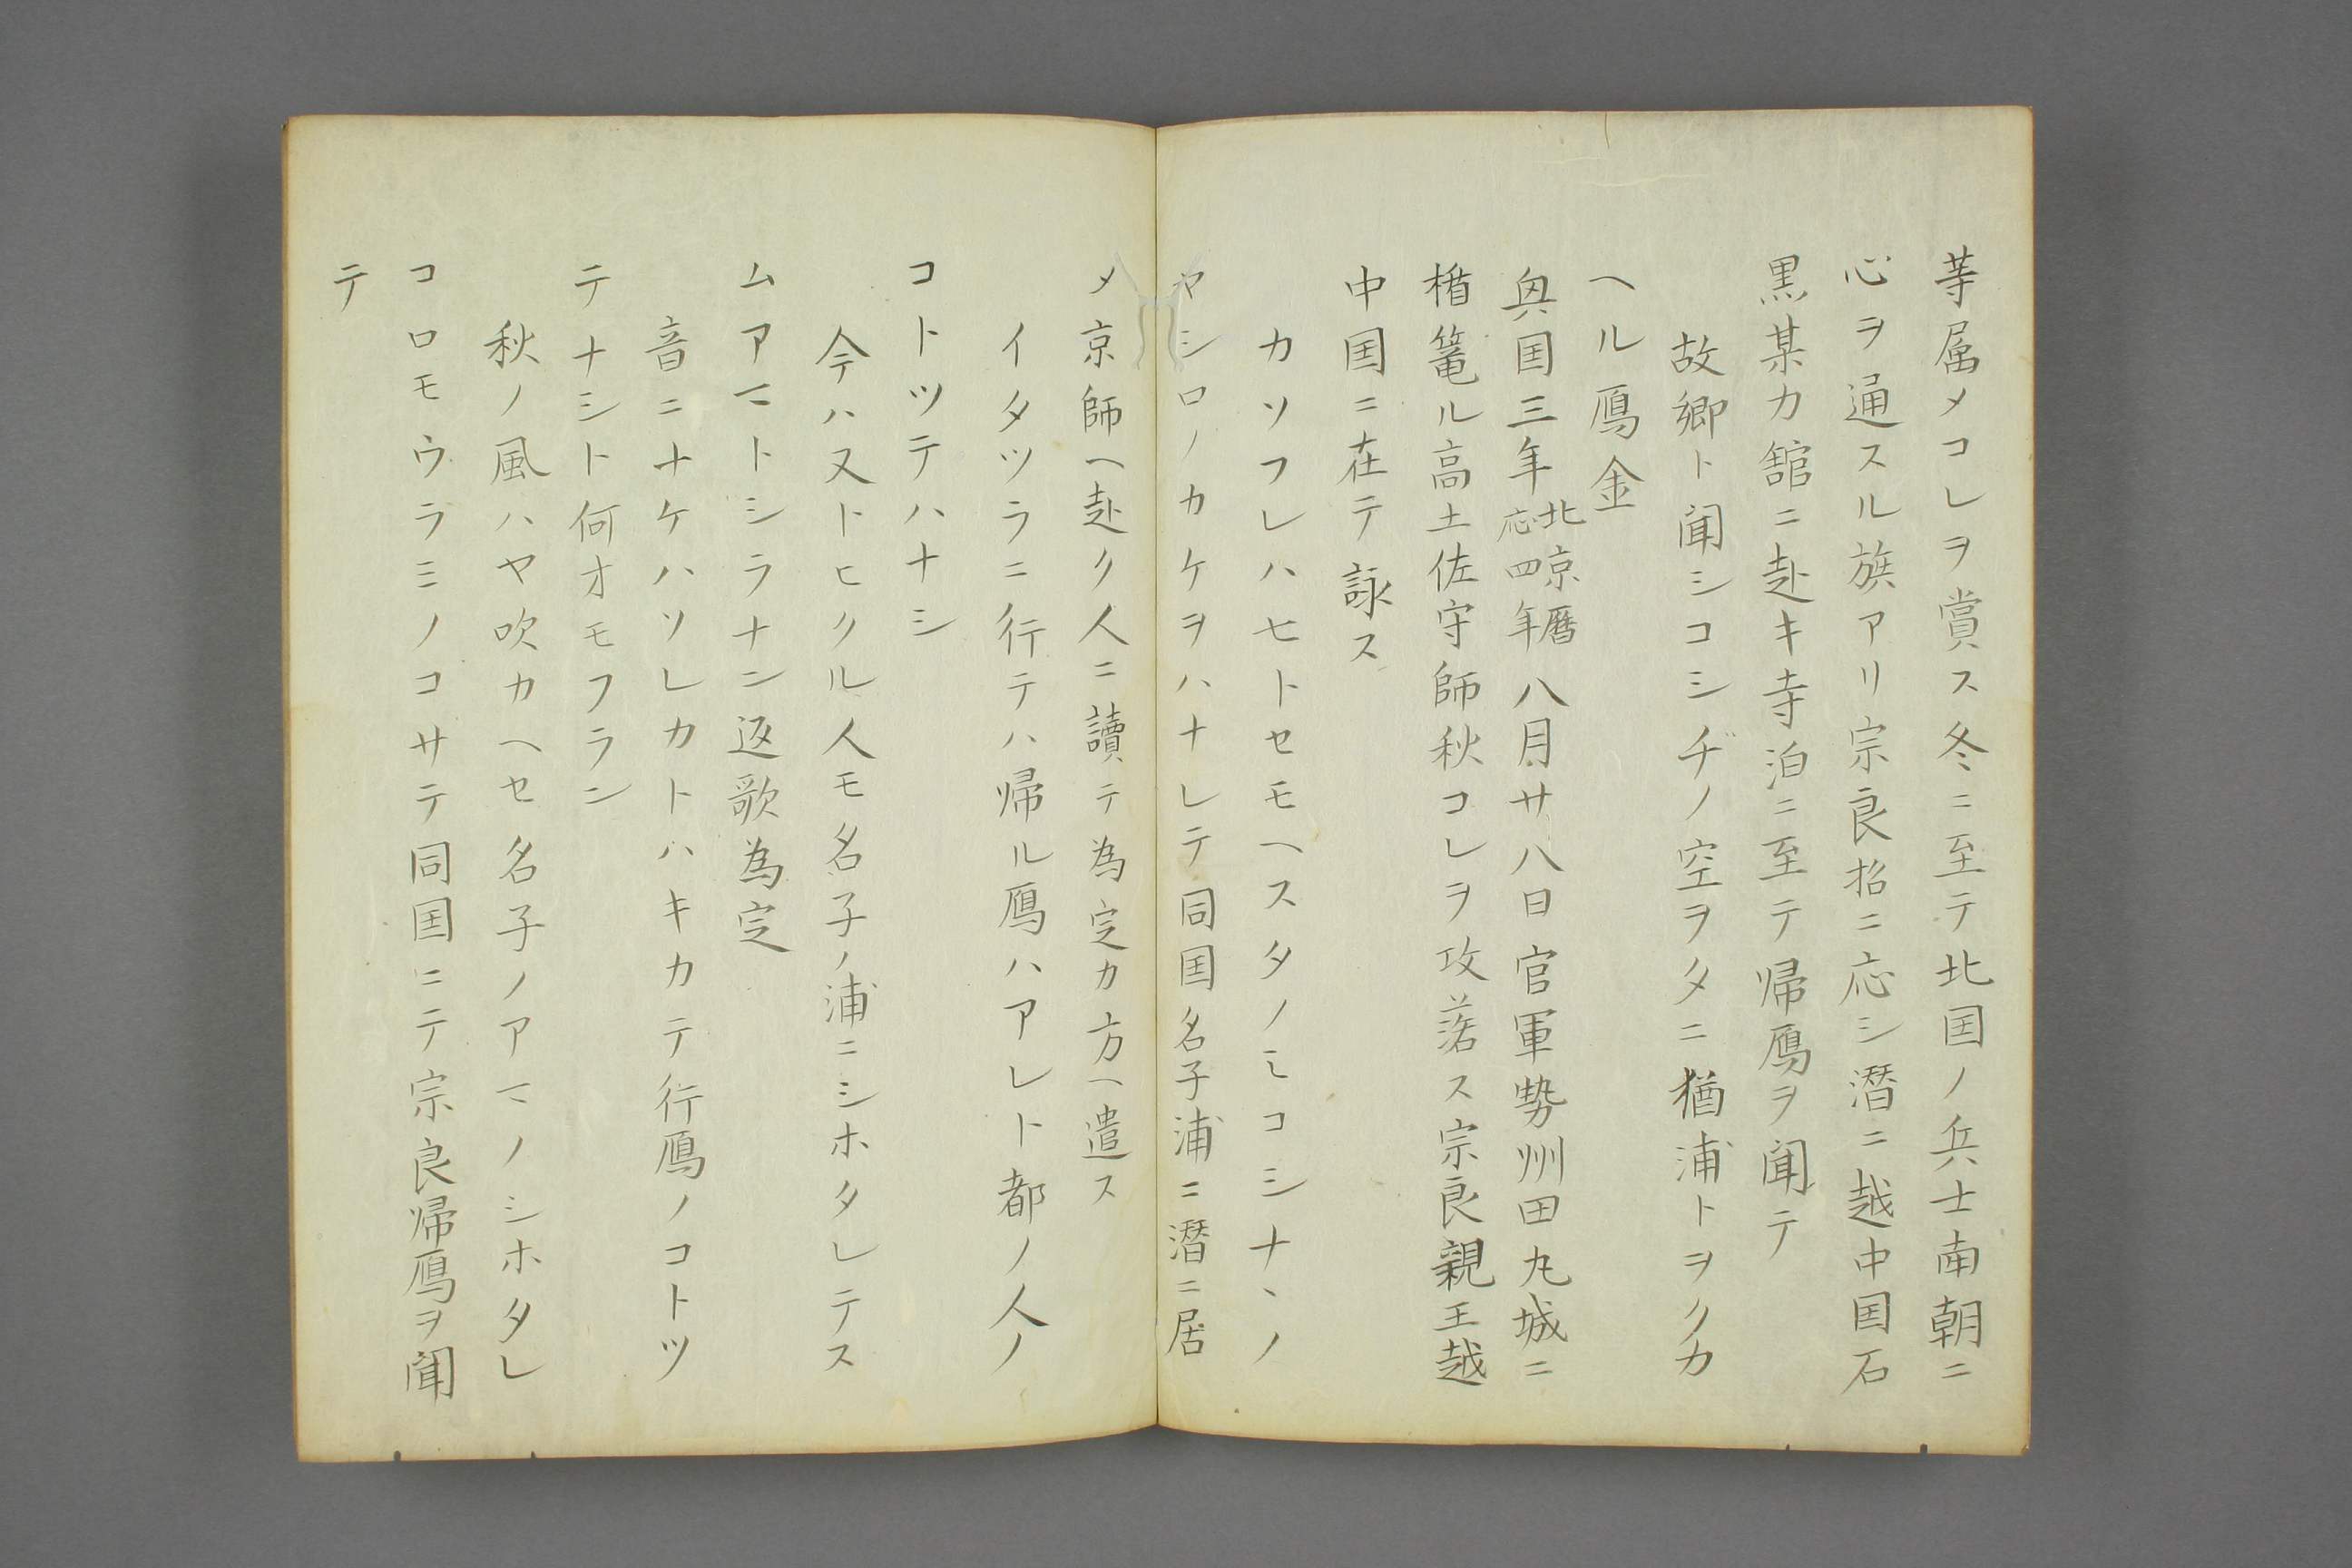 等属メコレヲ賞ス冬ニ至テ北国ノ兵士南朝ニ
心ヲ通スル族アリ宗良招ニ応シ潜ニ越中国石
黒某カ舘ニ赴キ寺泊ニ至テ帰鴈ヲ聞テ
故郷ト聞シコシヂノ空ヲタニ猶浦トヲクカ
ヘル鴈金
興国三年北京暦応四年八月廿八日官軍勢州田丸城ニ
楯篭ル高土佐守師秋コレヲ攻落ス宗良親王越
中国ニ在テ詠ス
カソフレハ七トセモヘスタノミコシナヽノ
ヤシロノカケヲハナレテ同国名子浦ニ潜ニ居
メ京師ヘ赴ク人ニ讀テ為定カ方ヘ遣ス
イタツラニ行テハ帰ル鴈ハアレト都ノ人ノ
コトツテハナシ
今ハ又トヒクル人モ名子ノ浦ニシホタレテス
ムアマトシラナン返歌為定
音ニナケハソレカトハキカテ行鴈ノコトツ
テナシト何オモフラン
秋ノ風ハヤ吹カヘセ名子ノアマノシホタレ
コロモウラミノコサテ同国ニテ宗良帰鴈ヲ聞
テ